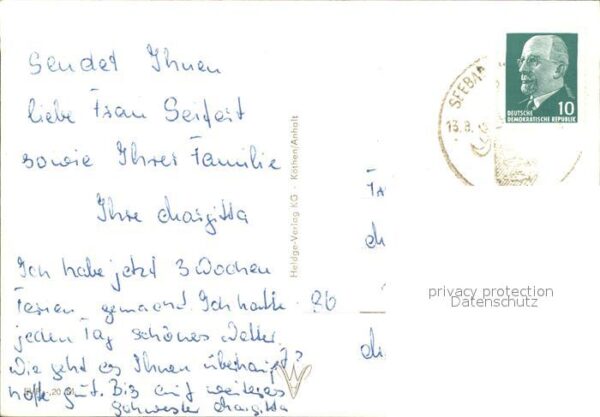 Sendet Ihnen
liebe Frau Seifert
sowie Ihrer Familie
Ihre Margitta
Ich habe jetzt 3 Wochen
Ferien gemacht. Ich hatte
jeden Tag schönes Wetter.
Wie geht es Ihnen überhaupt?
hoffe gut. Bis auf weiteres
Schwester Margitta
Heldge-Verlag KG - Köthen/Anhalt
SEEBA
13.8.
10
DEUTSCHE
DEMOKRATISCHE REPUBLIK
privacy protection
Datenschutz